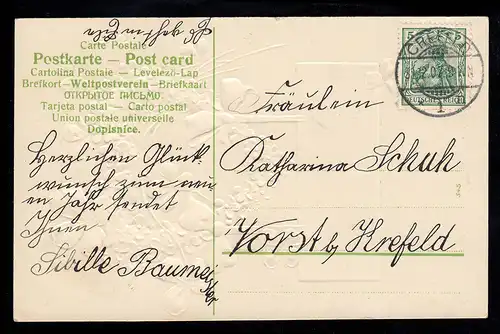 Carte Postale
Postkarte — Post card
Cartolina Postale — Levelező-Lap
Brefkort - Weltpostverein - Briefkaart
ОТКРЫТОЕ ПИСЬМО.
Tarjeta postal — Carto postal
Union postale universelle
Dopisnice.
Herzlichen Glück-
wunsch zum neu-
en Jahr sendet
Ihnen
Sibille Baumei
ster
5
CREFELD
DEUTSCHES REICH
1
Fräulein
Katharina Schuh
Vorst b. Krefeld